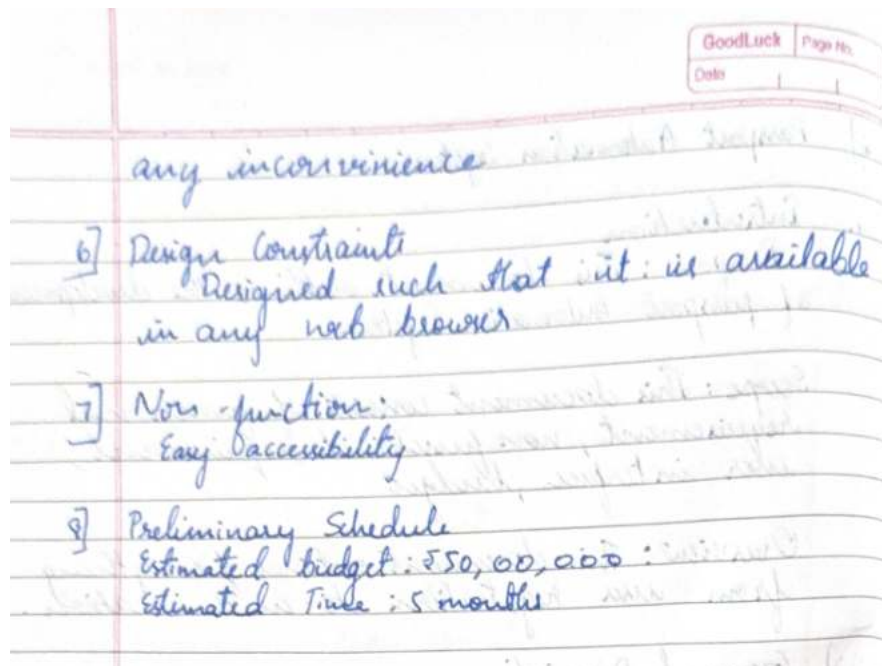 GoodLuck Page No.
Date
any inconvinience
6] Design Constraints
Designed such that it is available
in any web browser
7] Non-function:
Easy accessibility
8] Preliminary Schedule
Estimated budget: ₹50,00,000:
Estimated Time: 5 months